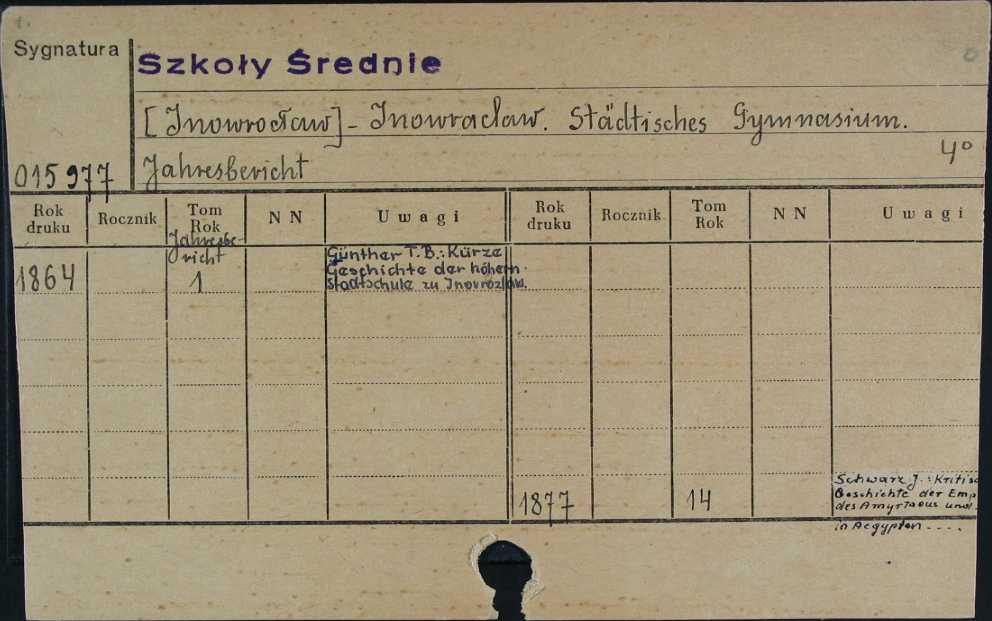 Sygnatura
Szkoły Średnie
[Inowrocław] - Inowraclaw. Städtisches Gymnasium.
4°
015 977
Jahresbericht
Rok druku Rocznik Tom Rok N N Uwagi Rok druku Rocznik Tom Rok N N Uwagi
Jahresbe-
richt
1864 1
Günther T.B.: Kürze
Geschichte der höhern
Stadtschule zu Inovrozlaw.
1877 14
Schwarz J.: Kritisc
Geschichte der Emp
des Amyrtaous und
in Aegypten ....